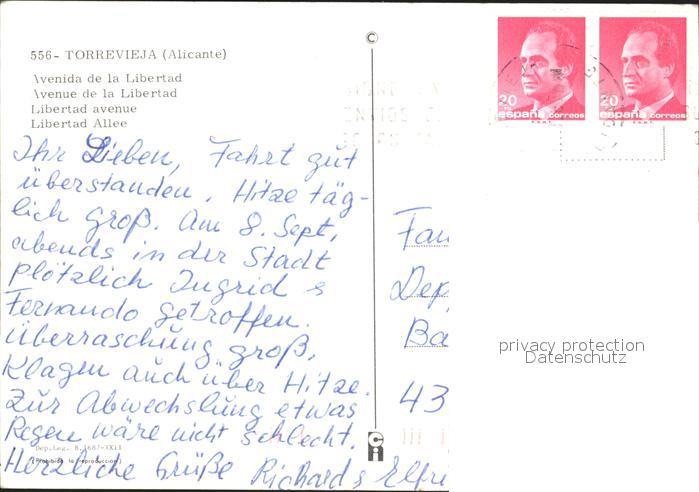 556- TORREVIEJA (Alicante)
Avenida de la Libertad
Avenue de la Libertad
Libertad avenue
Libertad Allee
Ihr Lieben, Fahrt gut
überstanden. Hitze täg-
lich groß. Am 8. Sept,
abends in der Stadt
plötzlich Ingrid &
Fernando getroffen.
Überraschung groß,
Klagen auch über Hitze.
Zur Abwechslung etwas
Regen wäre nicht schlecht.
Herzliche Grüße Richard & Elfri
Dep. Leg. B.
(Prohibida la reproducción)
20
españa correos
20
españa correos
Fam
Dep
Ba
43
privacy protection
Datenschutz